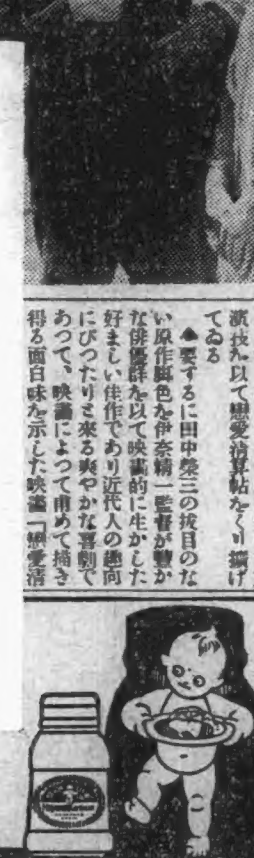 演技を以て戀愛清算帖をくり擴げ
てゐる
▲要するに田中榮三の拔目のな
い原作脚色を伊奈精一監督が豐か
な俳優群を以て映畵的に生かした
好ましい佳作であり近代人の趣向
にぴつたりと來る爽やかな喜劇で
あつて、映畵によつて甫めて描き
得る面白味を示した映畵「戀愛清